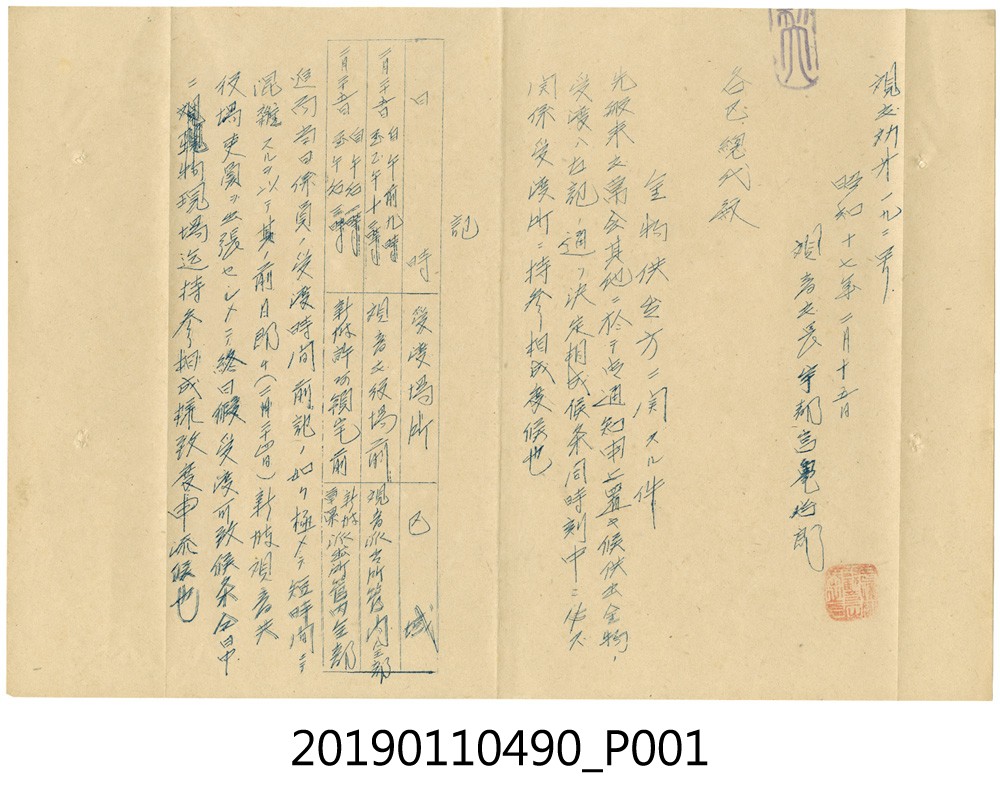 観文勧才一九二号
昭和十七年二月十五日
観音庄長宇都宮亀治郎
各区總代殿
金物供出方ニ関スル件
先般来之常会其他ニ於テ御通知申上置キ候供出金物ノ
受渡ハ左記ノ通リ決定相成候条同時刻中ニ必ズ
関係受渡所ニ持参相成度候也
記
日時
受渡場所
区域
自午前九時
至正午十二時
観音庄役場前
観音派出所管内全部
新坡許功領宅前
新坡
派出所管内全部
追而当日係員ノ受渡時間前記ノ如ク極メテ短時間ニテ
混雑スルヲ以テ其ノ前日即チ(二月二十四日)新坡観音共
役場吏員ヲ出張セシメテ終日仮受渡可致候条全日中
ニ現物現場迄持参相成様致度申添候也
20190110490_P001